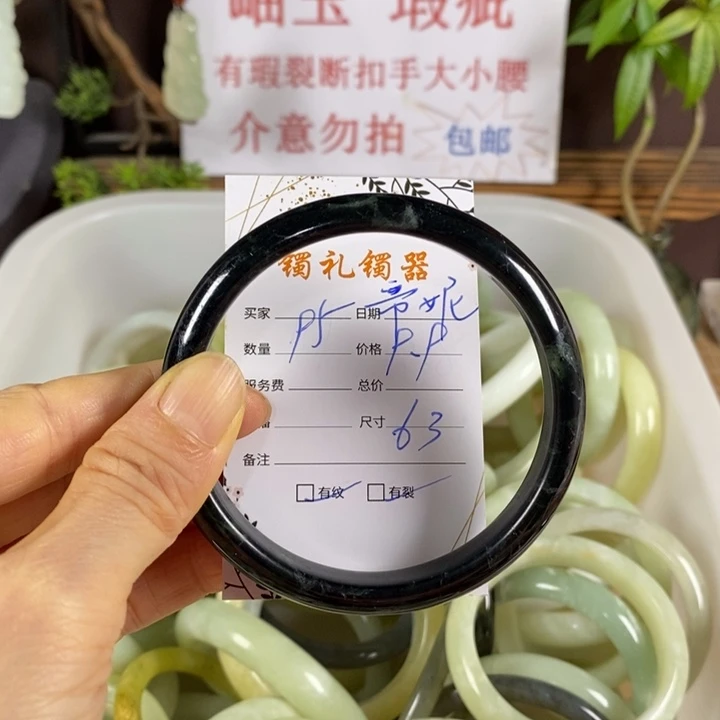 岫玉 瑕疵
有瑕裂断扣手大小腰
介意勿拍 包邮
镯礼镯器
买家 日期
数量 价格 P.P
服务费 总价
尺寸 63
备注
有纹 有裂